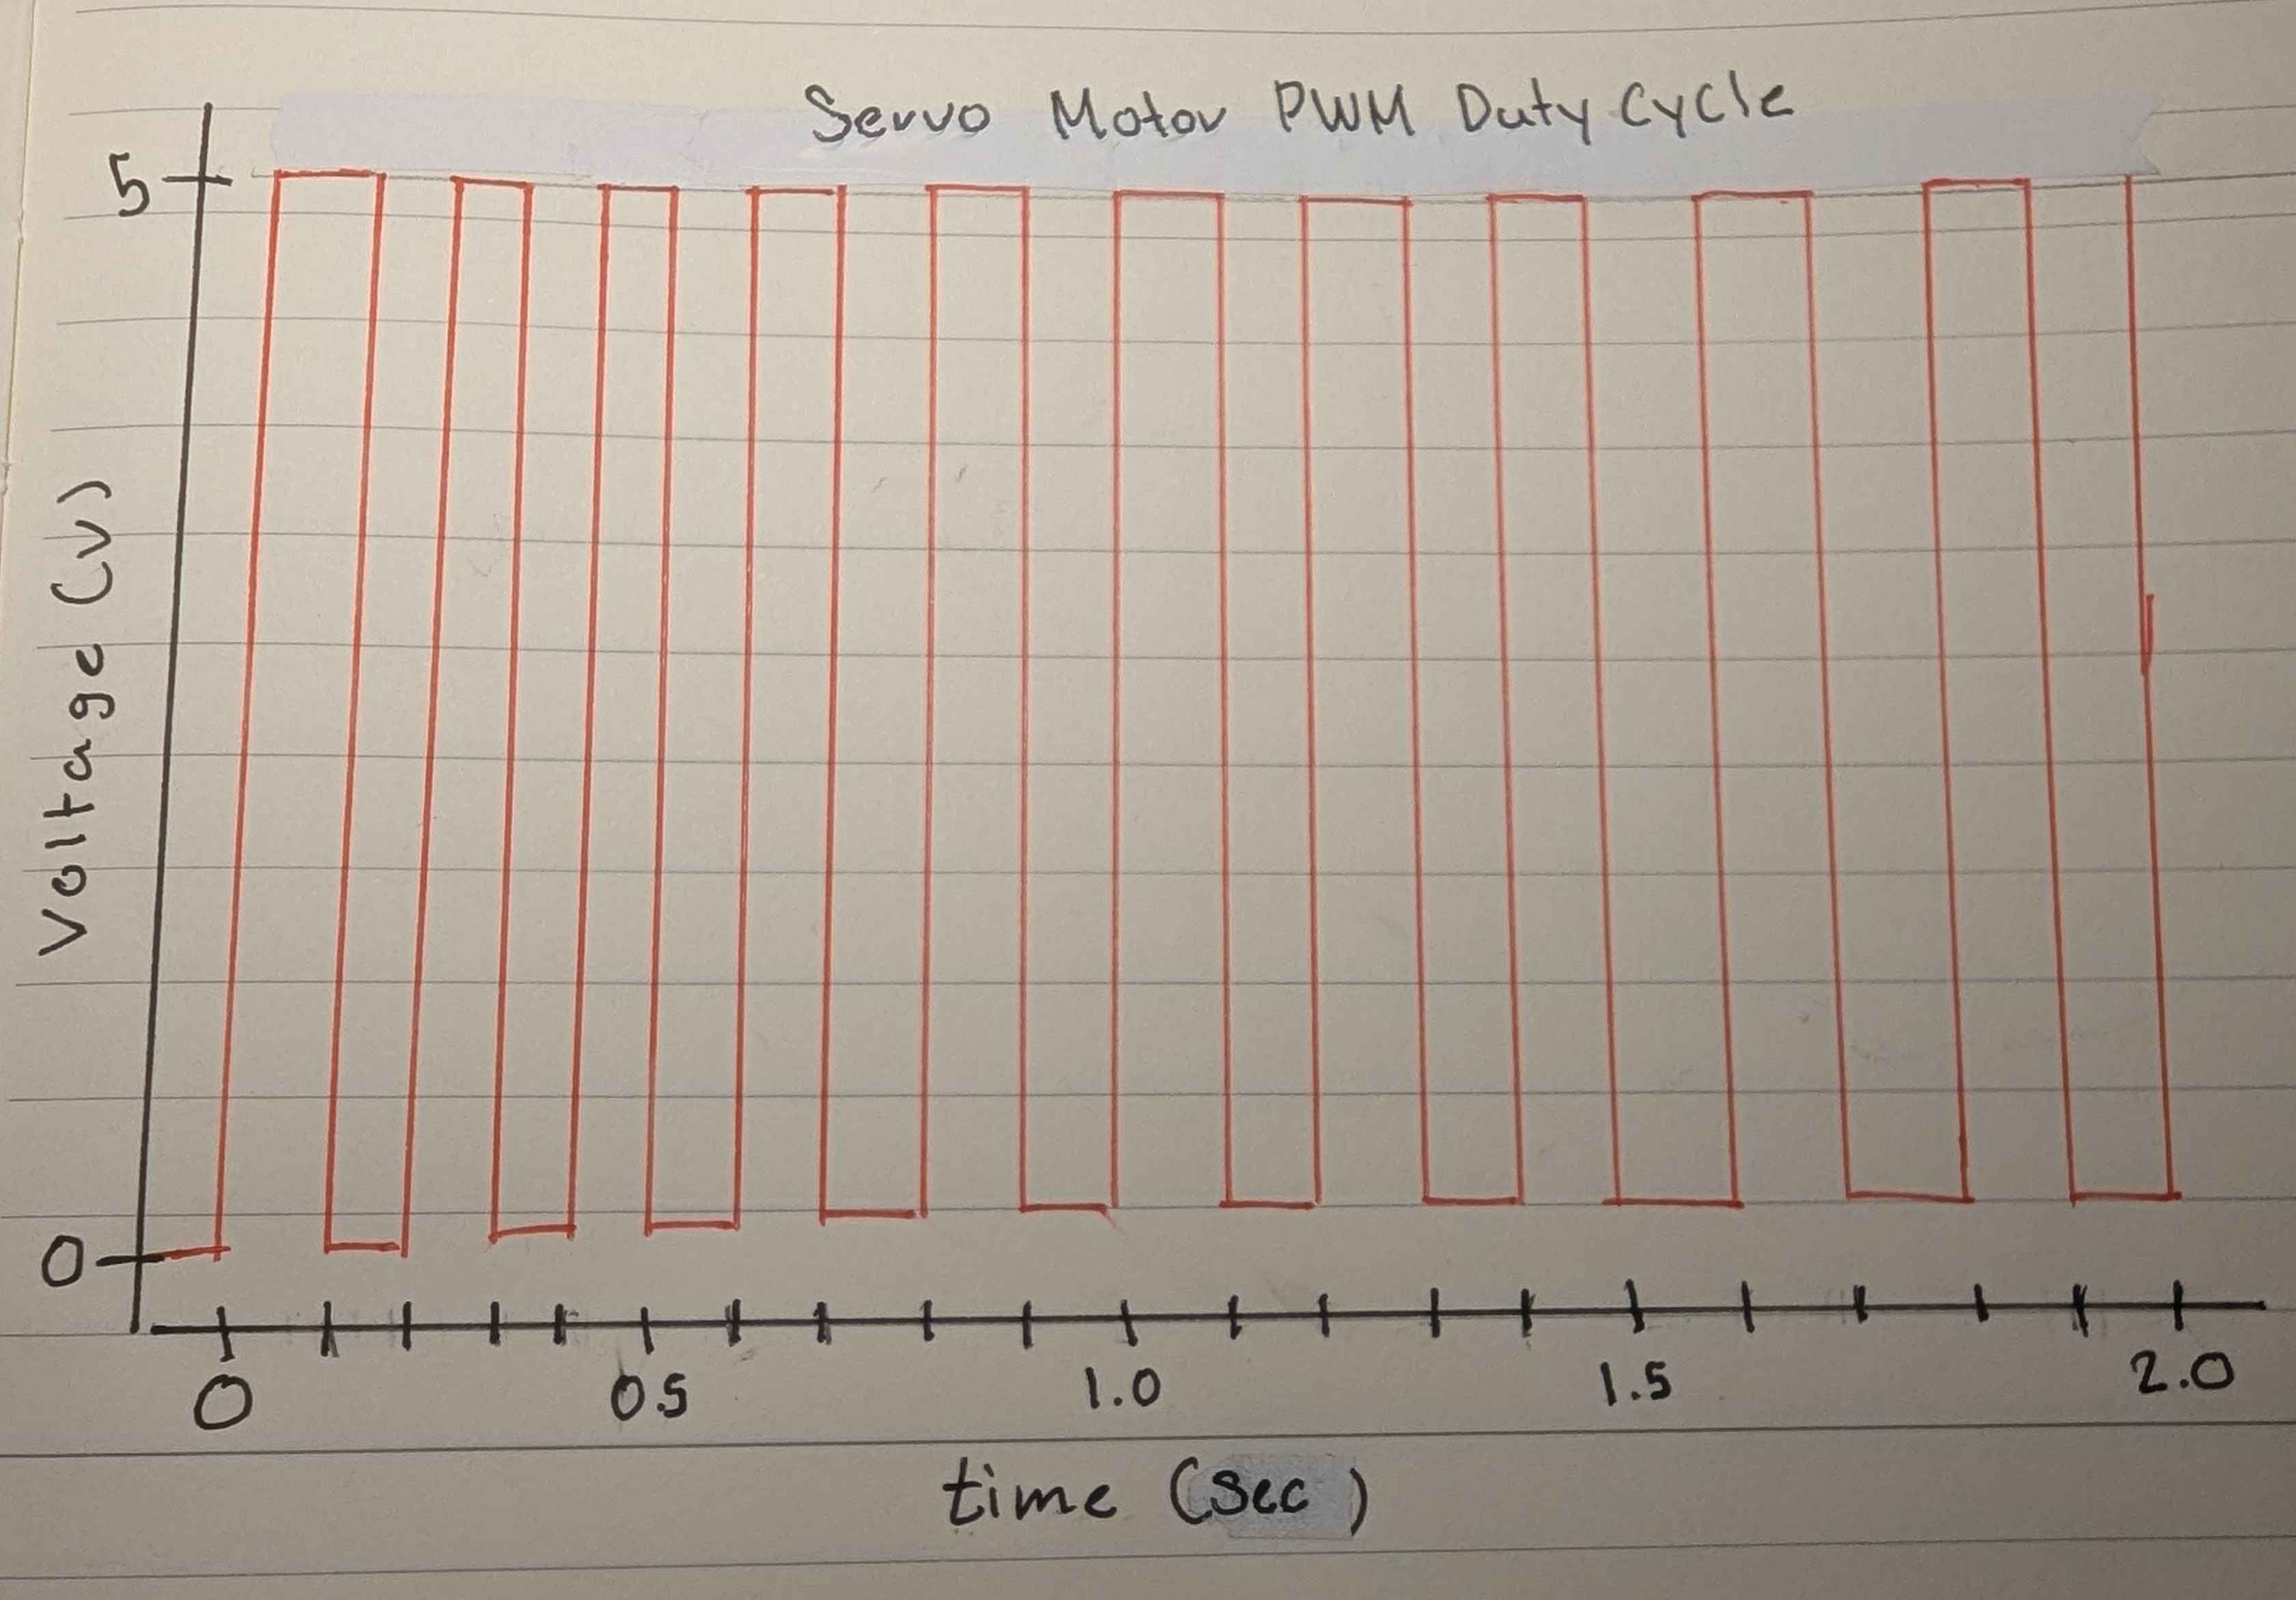 Servo Motor PWM Duty Cycle
5
Voltage (V)
0
0 0.5 1.0 1.5 2.0
time (sec)